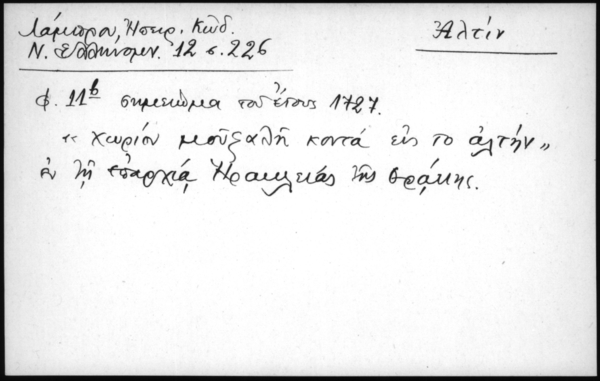 Λάμπρου, Ἠπειρ. Κώδ.
Ἀλτίν
Ν. Ἑλληνομν. 12 σ. 226
φ. 11β σημείωμα τοῦ ἔτους 1727.
“ χωρίον μουξαλῆ κοντά εἰς το ἀλτήν „
ἐν τῇ ἐπαρχίᾳ Ἡρακλείας τῆς Θράκης.